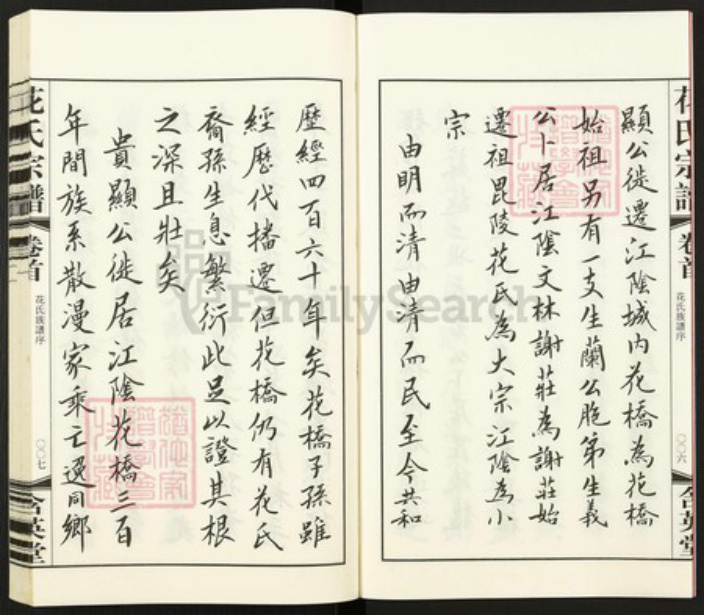 花氏宗譜
卷首
花氏族譜序
〇〇六
含英堂
顯公徙遷江陰城內花橋為花橋
始祖另有一支生蘭公胞弟生義
公卜居江陰文林謝莊為謝莊始
遷祖毘陵花氏為大宗江陰為小
宗
由明而清由清而民至今共和
歷經四百六十年矣花橋子孫雖
經歷代播遷但花橋仍有花氏
裔孫生息繁衍此足以證其根
之深且壯矣
貴顯公徙居江陰花橋三百
年間族系散漫家乘亡逸同鄉
花氏宗譜
卷首
花氏族譜序
〇〇七
含英堂
FamilySearch